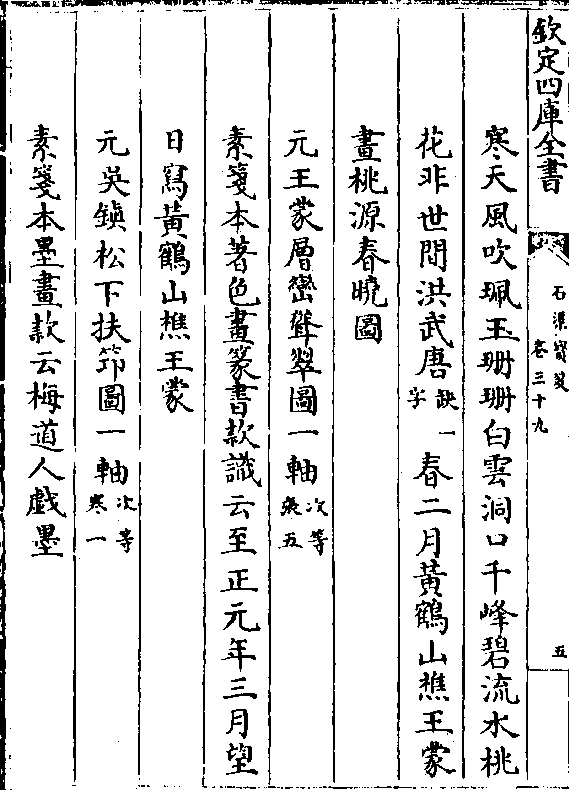 欽定四庫全書
石渠寶笈
卷三十九
五
寒天風吹珮玉珊珊白雲洞口千峰碧流水桃
花非世間洪武唐缺一字春二月黃鶴山樵王蒙
畫桃源春曉圖
元王蒙層巒聳翠圖一軸次等張五
素箋本著色畫篆書款識云至正元年三月望
日寫黃鶴山樵王蒙
元吳鎮松下扶筇圖一軸次等寒一
素箋本墨畫款云梅道人戲墨